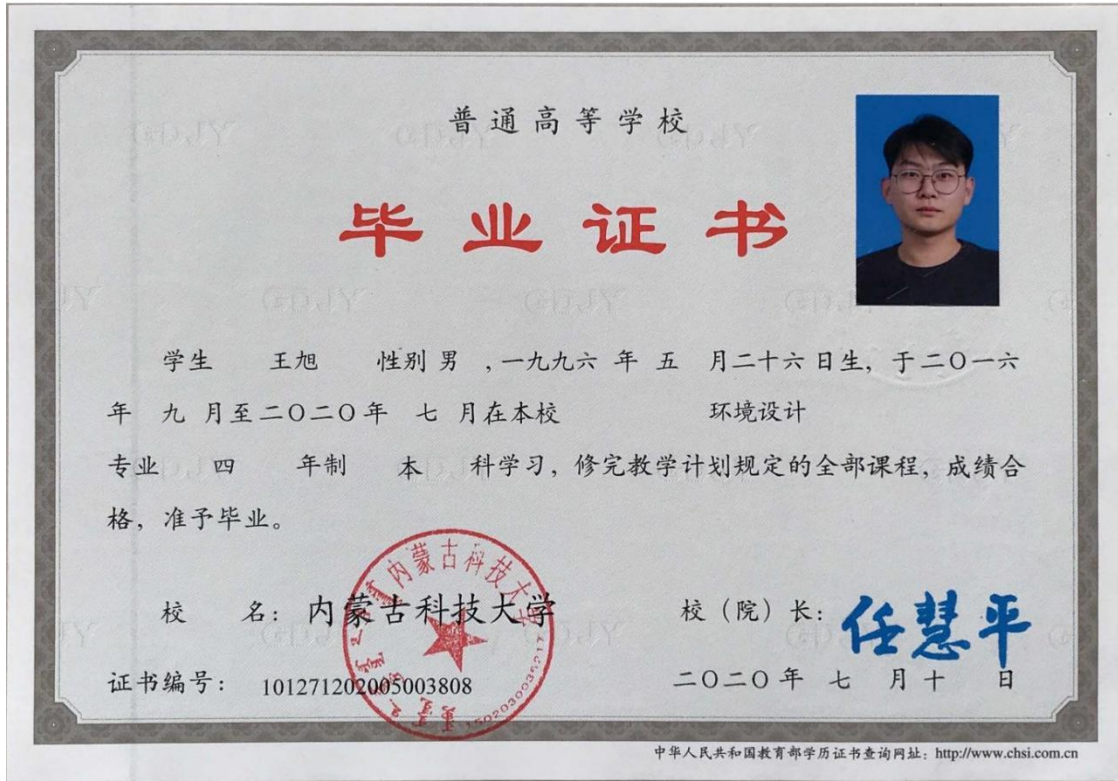 普通高等学校
毕业证书
学生 王旭 性别 男 ，一九九六 年 五 月二十六 日生，于二〇一六
年 九 月至二〇二〇年 七 月在本校 环境设计
专业 四 年制 本 科学习，修完教学计划规定的全部课程，成绩合
格，准予毕业。
校 名：内蒙古科技大学
校（院）长：任慧平
内蒙古科技大学
证书编号： 101271202005003808
二〇二〇年 七 月十 日
中华人民共和国教育部学历证书查询网址：http://www.chsi.com.cn